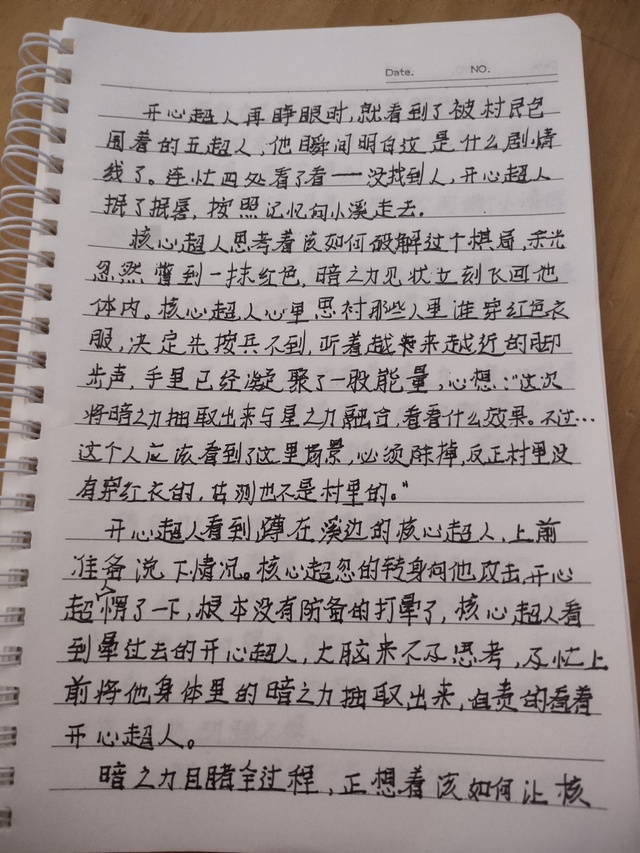 Date. NO.
开心超人再睁眼时,就看到了被村民包
围着的五超人,他瞬间明白这是什么剧情
线了。连忙四处看了看——没找到人,开心超人
抿了抿唇,按照记忆向小溪走去。
核心超人思考着该如何破解这个棋局,余光
忽然瞥到一抹红色,暗之力见状立刻飞回他
体内。核心超人心里思衬那些人里谁穿红色衣
服,决定先按兵不到,听着越来越近的脚
步声,手里已经凝聚了一股能量,心想:“这次
将暗之力抽取出来与星之力融合,看看什么效果。不过…
这个人应该看到了这里场景,必须除掉,反正村里没
有穿红衣的,估测也不是村里的。”
开心超人看到蹲在溪边的核心超人,上前
准备说下情况。核心超忽的转身向他攻击,开心
超人愣了一下,根本没有防备的打晕了,核心超人看
到晕过去的开心超人,大脑来不及思考,及忙上
前将他身体里的暗之力抽取出来,自责的看着
开心超人。
暗之力目睹全过程,正想着该如何让核